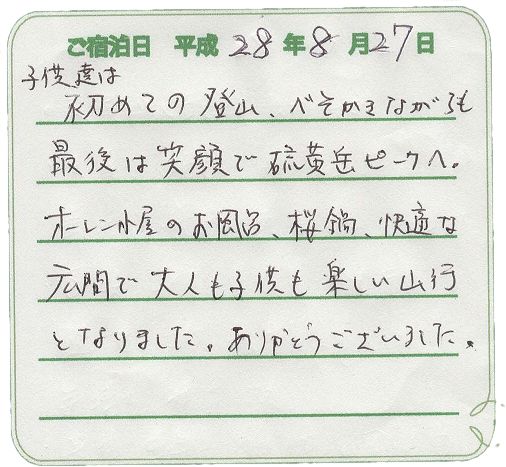 ご宿泊日 平成 28 年 8 月 27 日
子供達は
初めての登山、べそかきながらも
最後は笑顔で硫黄岳ピークへ。
オーレン小屋のお風呂、桜鍋、快適な
広間で大人も子供も楽しい山行
となりました。ありがとうございました。